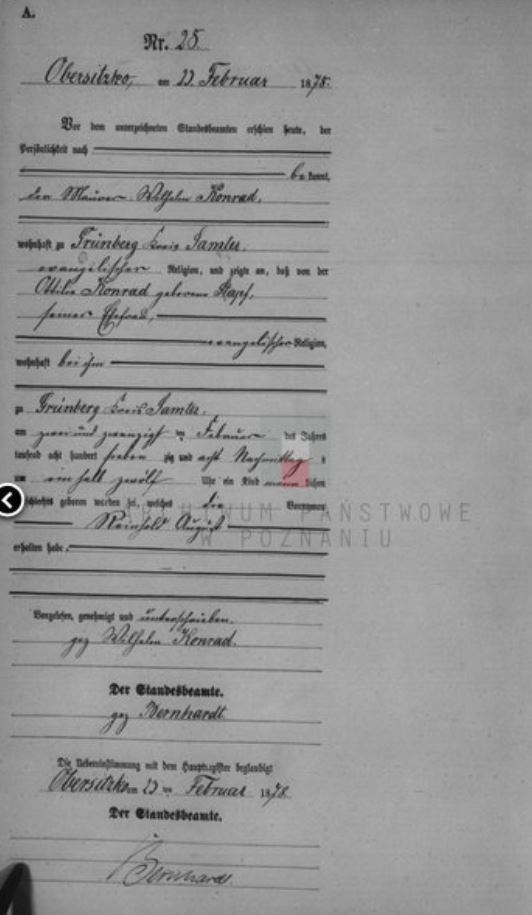 A.
Nr. 25.
Obersitzko, am 23. Februar 1878.
Vor dem unterzeichneten Standesbeamten erschien heute, der
Persönlichkeit nach
bekannt,
den Maurer Wilhelm Konrad,
wohnhaft zu Grünberg Kreis Samter,
evangelischer Religion, und zeigte an, daß von der
Ottilie Konrad geborene
seiner Ehefrau,
evangelischer Religion,
wohnhaft bei ihm
zu Grünberg Kreis Samter,
am zwei und zwanzigst en Februar des Jahres
tausend acht hundert sieben zig und acht Nachmittag s
um ein halb zwölf Uhr ein Kind männ lichen
Geschlechts geboren worden sei, welches die Vornamen
Reinhold August
erhalten habe.
ARCHIWUM PAŃSTWOWE
W POZNANIU
Vorgelesen, genehmigt und unterschrieben.
gez Wilhelm Konrad.
Der Standesbeamte.
gez Bernhardt.
Die Uebereinstimmung mit dem Hauptregister beglaubigt
Obersitzko am 23 ten Februar 1878.
Der Standesbeamte.
Bernhardt.